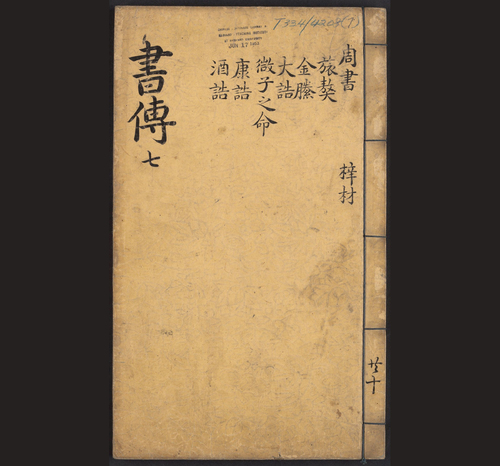 T 334/4203 (7)
JUN 17
周書
旅獒
金縢
大誥
微子之命
康誥
酒誥
梓材
書傳
七
共十